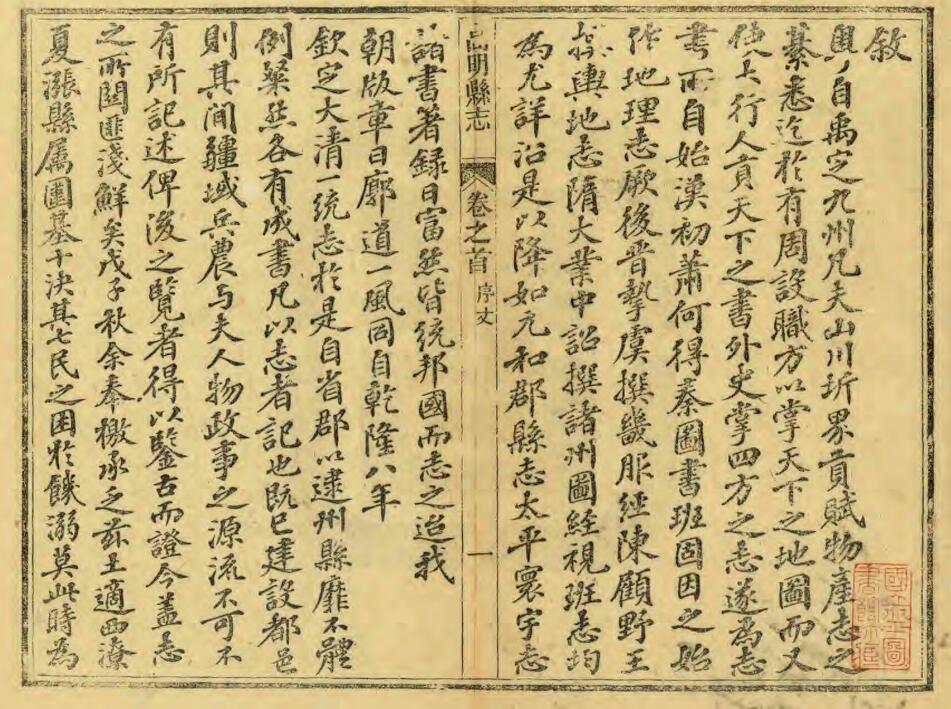 敘
自禹定九州凡夫山川圻界貢賦物產志之
綦悉迄於有周設職方以掌天下之地圖而又
使大行人貢天下之書外史掌四方之志遂為志
書所自始漢初蕭何得秦圖書班固因之始
作地理志厥後晉摯虞撰畿服經陳顧野王
輿地志隋大業中詔撰諸州圖經視班志均
為尤詳沿是以降如元和郡縣志太平寰宇志
明縣志 卷之首 序文 一
諸書著錄日富然皆統邦國而志之迨我
朝版章日廓道一風同自乾隆八年
欽定大清一統志於是自省郡以逮州縣靡不體
例粲然各有成書凡以志者記也既已建設都邑
則其間疆域兵農与夫人物政事之源流不可不
有所記述俾後之覽者得以鑒古而證今蓋志
之所關匪淺鮮矣戊子秋余奉檄承乏茲土適西潦
夏漲縣属圍基十決其七民之困於饑溺莫此時為
國立北平圖書館所藏